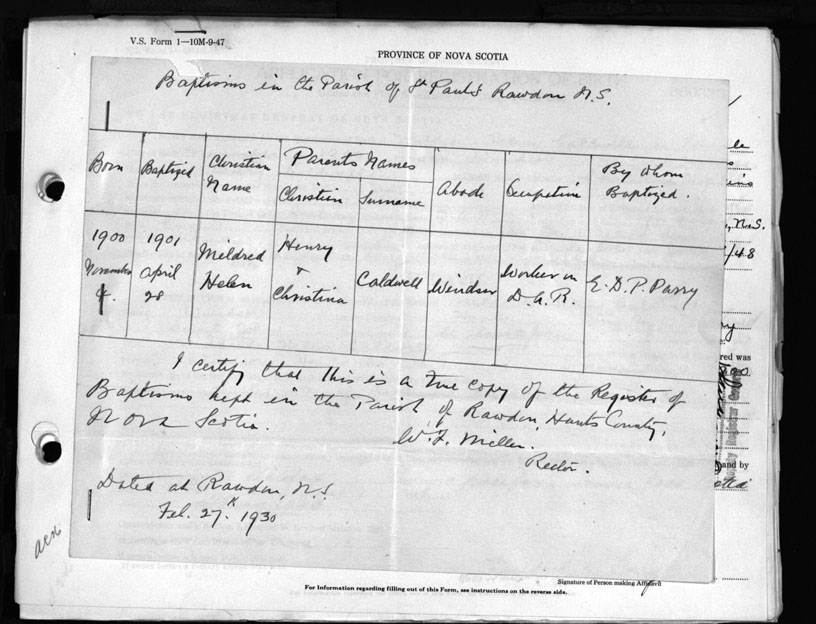 V.S. Form 1—10M-9-47
PROVINCE OF NOVA SCOTIA
Baptisms in the Parish of St Paul's Rawdon N.S.
Born Baptized Christian Name Parents Names Abode Occupation By Whom Baptized.
Christian Surname
1900 November 4. 1901 April 28 Mildred Helen Henry & Christina Caldwell Windsor Worker in D.A.R. E. D. P. Parry
I certify that this is a true copy of the Register of
Baptisms kept in the Parish of Rawdon, Hants County,
Nova Scotia.
W. F. Miller.
Rector.
Dated at Rawdon, N.S.
Feb. 27th 1930
Signature of Person making Affidavit
For Information regarding filling out of this Form, see instructions on the reverse side.
N.S.
red was
and by